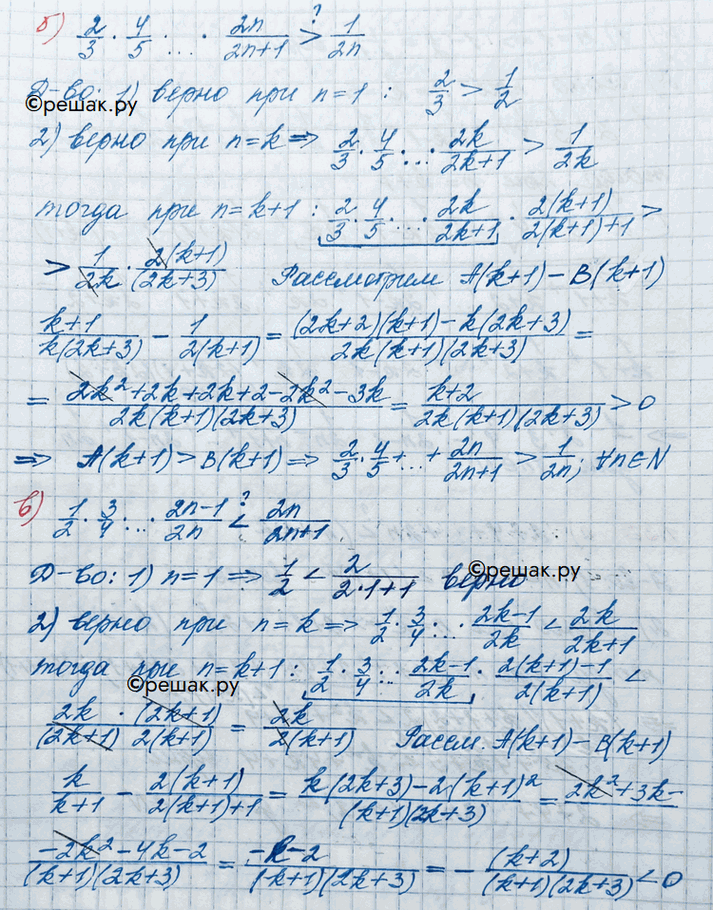 б) 2/3 · 4/5 · ... · 2n/(2n+1) >? 1/(2n)
Д-во: 1) верно при n=1 : 2/3 > 1/2
©решак.ру
2) верно при n=k ⇒ 2/3 · 4/5 · ... · 2k/(2k+1) > 1/(2k)
тогда при n=k+1 : 2/3 · 4/5 · ... · 2k/(2k+1) · 2(k+1)/(2(k+1)+1) >
> 1/(2k) · 2(k+1)/(2k+3) Рассмотрим A(k+1) − B(k+1)
(k+1)/(k(2k+3)) − 1/(2(k+1)) = ((2k+2)(k+1)−k(2k+3))/(2k(k+1)(2k+3)) =
= (2k²+2k+2k+2−2k²−3k)/(2k(k+1)(2k+3)) = (k+2)/(2k(k+1)(2k+3)) > 0
⇒ A(k+1) > B(k+1) ⇒ 2/3 · 4/5 + ... + 2n/(2n+1) > 1/(2n); ∀n∈N
в) 1/2 · 3/4 · ... · (2n−1)/(2n) <? 2n/(2n+1)
Д-во: 1) n=1 ⇒ 1/2 < 2/(2·1+1) верно
©решак.ру
2) верно при n=k ⇒ 1/2 · 3/4 · ... · (2k−1)/(2k) < 2k/(2k+1)
тогда при n=k+1 : 1/2 · 3/4 · ... · (2k−1)/(2k) · (2(k+1)−1)/(2(k+1)) <
©решак.ру
2k/(2k+1) · (2k+1)/(2(k+1)) = 2k/(2(k+1)) Рассм. A(k+1) − B(k+1)
k/(k+1) − 2(k+1)/(2(k+1)+1) = (k(2k+3)−2(k+1)²)/((k+1)(2k+3)) = 2k²+3k−
−2k²−4k−2/((k+1)(2k+3)) = (−k−2)/((k+1)(2k+3)) = − (k+2)/((k+1)(2k+3)) < 0